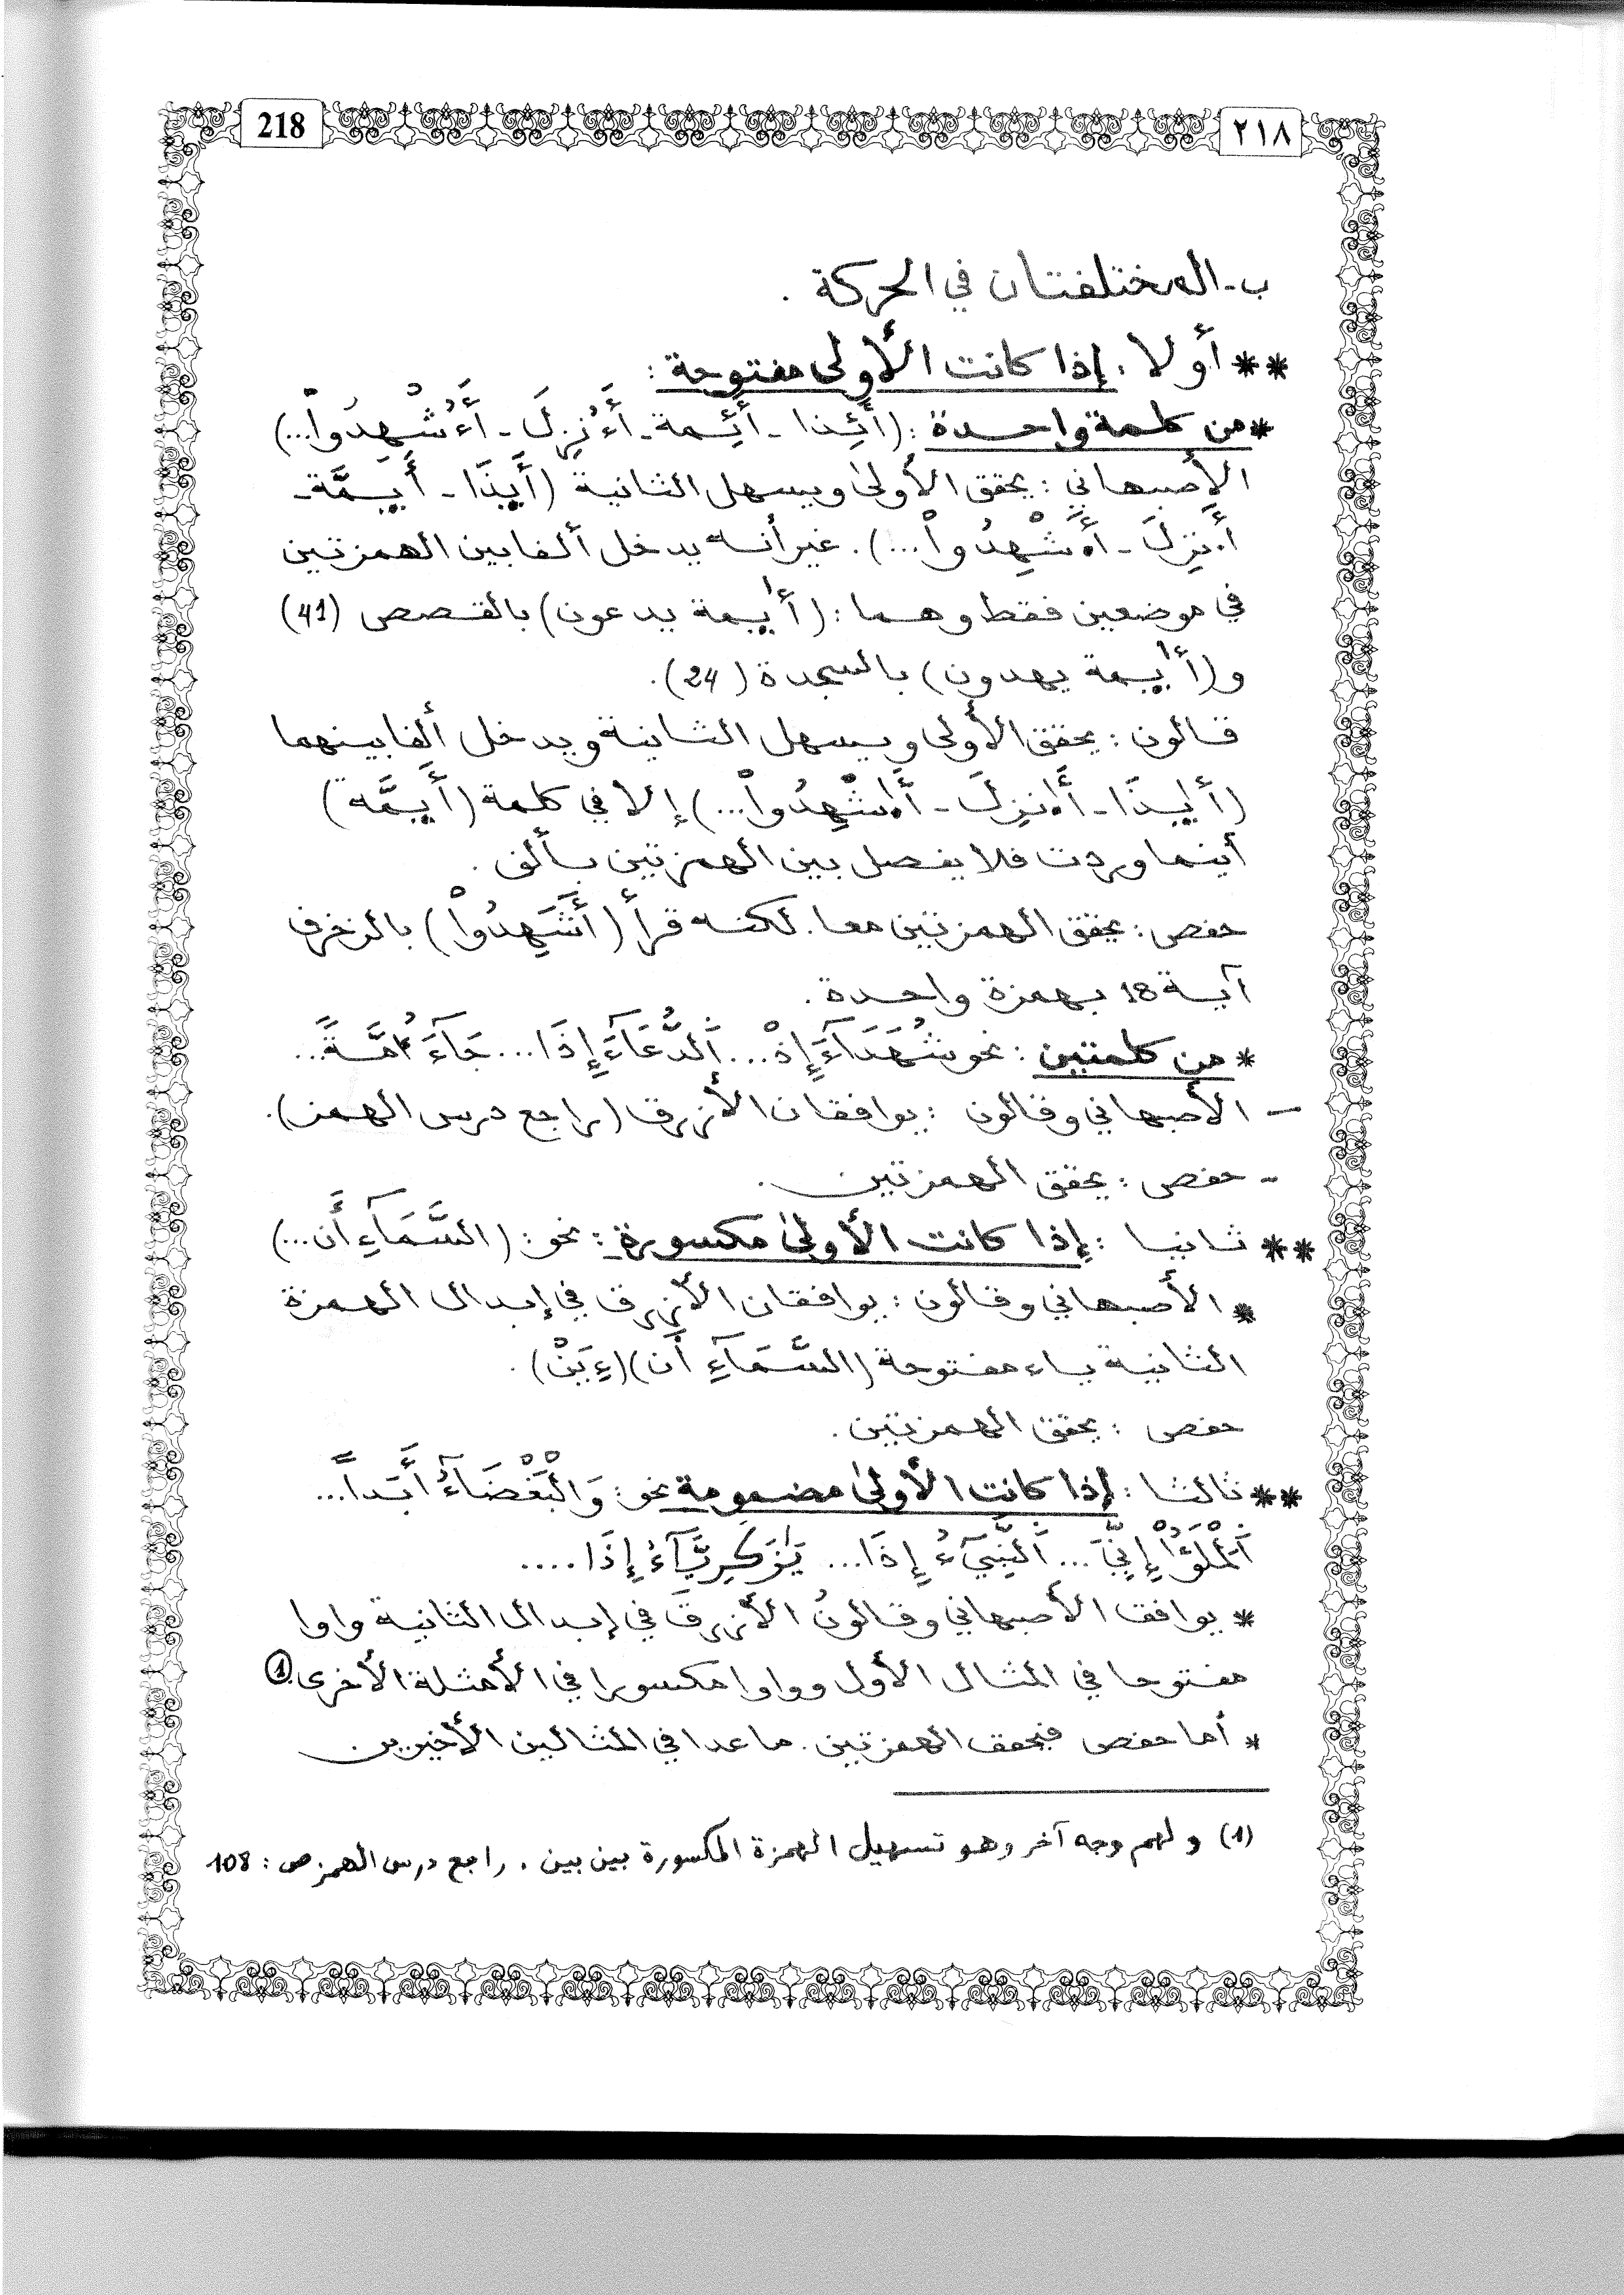 218
٢١٨
ب- المختلفتان في الحركة .
** أولا : إذا كانت الأولى مفتوحة :
* من كلمة واحدة : (أَئِذا - أَئِمة - أَءُنزِلَ - أَءُشْهِدُواْ...)
الأصبهاني : يحقق الأولى ويسهل الثانية (أَيِذَا - أَيِمَّة -
أَ.نزِلَ - أَ.شْهِدُواْ ...). غير أنه يدخل ألفا بين الهمزتين
في موضعين فقط وهما : (أَايمة يدعون) بالقصص (41)
و(أَايمة يهدون) بالسجدة (24).
قالون : يحقق الأولى ويسهل الثانية ويدخل ألفا بينهما
(أَايذَا - أَا.نزِلَ - أَا.شْهِدُواْ...) إلا في كلمة (أَيِمَّة)
أينما وردت فلا يفصل بين الهمزتين بألف .
حفص : يحقق الهمزتين معا. لكنه قرأ (أَشَهِدُواْ) بالزخرف
آية 18 بهمزة واحدة .
* من كلمتين : نحو شُهَدَآءَ إِذْ ... اَلدُّعَآءَ إِذَا ... جَآءَ امَّةً ...
– الأصبهاني وقالون : يوافقان الأزرق (راجع درس الهمز).
- حفص : يحقق الهمزتين .
** ثانيا : إذا كانت الأولى مكسورة : نحو : (السَّمَآءِ أَن ...)
* الأصبهاني وقالون : يوافقان الأزرق في إبدال الهمزة
الثانية ياء مفتوحة (السَّمَآءِ أَن)(ءِيَنْ) .
حفص : يحقق الهمزتين .
** ثالثا : إذا كانت الأولى مضمومة نحو : وَالْبَغْضَآءُ أَبَداً ...
اَلْمَلَؤُاْ إِنِّيَ ... اَلنَّبِيٓءُ إِذَا ... يَٰزَكَرِيَّآءُ إِذَا ....
* يوافق الأصبهاني وقالونُ الأزرقَ في إبدال الثانية واوا
مفتوحا في المثال الأول وواوا مكسورا في الأمثلة الأخرى. (1)
* أما حفص فيحقق الهمزتين . ما عدا في المثالين الأخيرين
(1) ولهم وجه آخر وهو تسهيل الهمزة المكسورة بين بين . راجع درس الهمز ص : 108